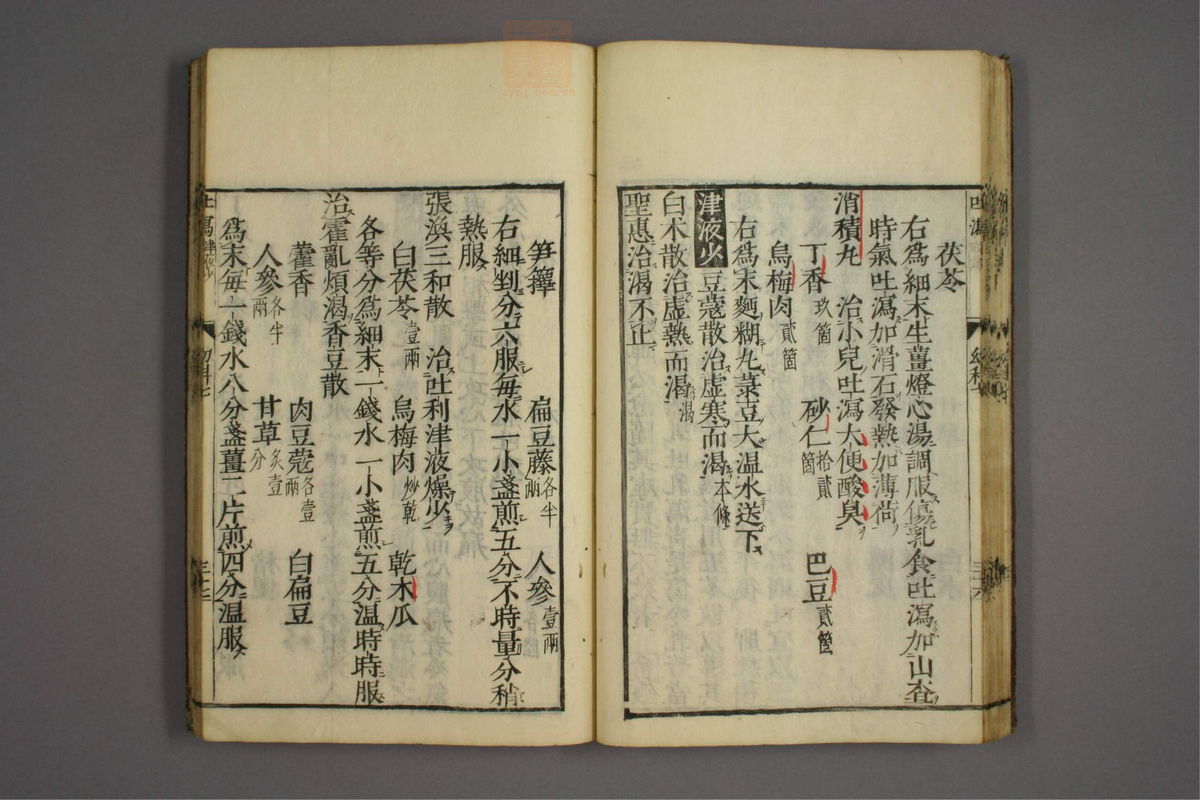 茯苓
右為細末生薑燈心湯調服傷乳食吐瀉加山查
時氣吐瀉加滑石發熱加薄荷
消積丸 治小兒吐瀉大便酸臭
丁香玖箇 砂仁拾貳箇 巴豆貳箇
烏梅肉貳箇
右為末麪糊丸菉豆大溫水送下
津液少 豆蔻散治虛寒而渴本條
白朮散治虛熱而渴渴
聖惠治渴不止
笋籜 扁豆藤各半兩 人參壹兩
右細剉分六服每水一小盞煎五分不時量分稍
熱服
張渙三和散 治吐利津液燥少
白茯苓壹兩 烏梅肉炒乾 乾木瓜
各等分為細末一錢水一小盞煎五分溫時時服
治霍亂煩渴香豆散
藿香 肉豆蔻各壹兩 白扁豆
人參各半兩 甘草炙壹分
為末每一錢水八分盞薑二片煎四分溫服
吐瀉
幼科七
吐瀉津液少
幼科七